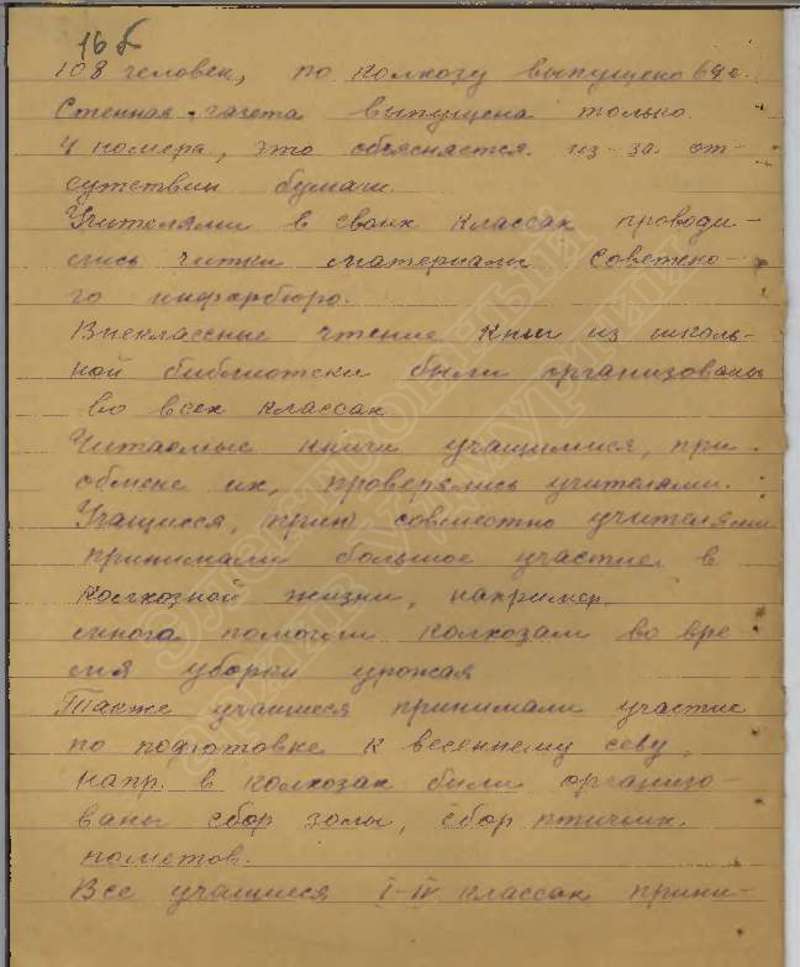 16б
108 человек, по колхозу выпущено 69 г.
Стенная газета выпущена только
4 номера, это объясняется из-за от-
сутствии бумаги.
Учителями в своих классах проводи-
лись читки материалы Советско-
го информбюро.
Внеклассные чтение книг из школь-
ной библиотеки были организованы
во всех классах
Читаемые книги учащимися, при
обмене их, проверялись учителями.
Учащиеся, совместно учителями
принимали большое участие в
колхозной жизни, например.
много помогли колхозам во вре
мя уборки урожая
Также учащиеся принимали участие
по подготовке к весеннему севу,
напр. в колхозах были организо-
ваны сбор золы, сбор птичьих.
пометов.
Все учащиеся I-IV классах прини-
ЭЛЕКТРОННЫЙ
АРХИВ УДМУРТИИ